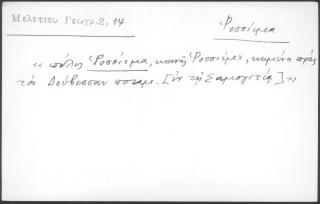 Μελετίου Γεωγρ. 2, 14
Ῥοσσίεμα
« πόλις Ῥοσσίεμα, κοινῶς Ῥοσσίεμε, κειμένη πρὸς
τὸν Δούβεσσαν ποταμ. [ἐν τῇ Σαμογιτίᾳ] »